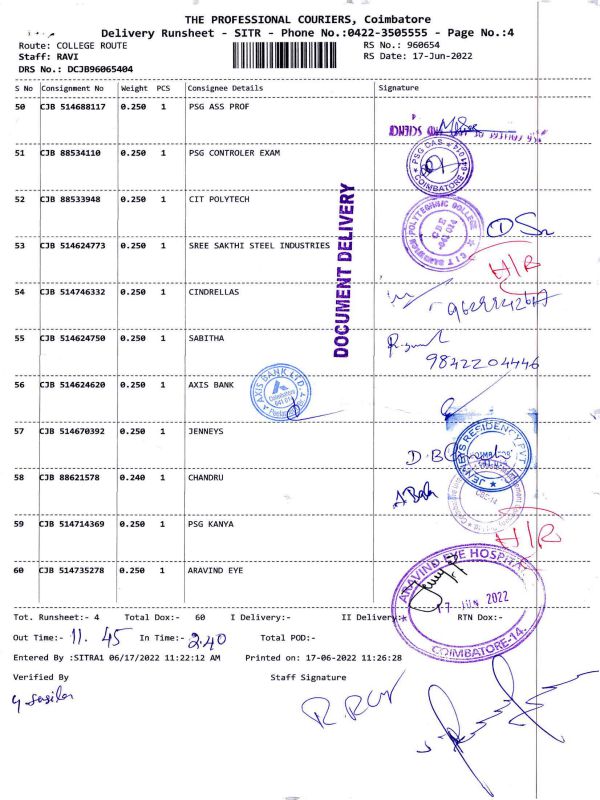 THE PROFESSIONAL COURIERS, Coimbatore
Delivery Runsheet - SITR - Phone No.:0422-3505555 - Page No.:4
Route: COLLEGE ROUTE RS No.: 960654
Staff: RAVI RS Date: 17-Jun-2022
DRS No.: DCJB96065404
S No Consignment No Weight PCS Consignee Details Signature
50 CJB 514688117 0.250 1 PSG ASS PROF
51 CJB 88534110 0.250 1 PSG CONTROLER EXAM
PSG CAS
COIMBATORE
52 CJB 88533948 0.250 1 CIT POLYTECH
CIT SANDWICH POLYTECHNIC COLLEGE
CBE
641 014
53 CJB 514624773 0.250 1 SREE SAKTHI STEEL INDUSTRIES
H/B
DOCUMENT DELIVERY
54 CJB 514746332 0.250 1 CINDRELLAS
55 CJB 514624750 0.250 1 SABITHA
9842204446
56 CJB 514624620 0.250 1 AXIS BANK
AXIS BANK LTD.
Coimbatore
641 014
57 CJB 514670392 0.250 1 JENNEYS
JENNEYS RESIDENCY PVT
58 CJB 88621578 0.240 1 CHANDRU
CBE-14
59 CJB 514714369 0.250 1 PSG KANYA
H/R
60 CJB 514735278 0.250 1 ARAVIND EYE
ARAVIND EYE HOSPITAL
17 JUN 2022
COIMBATORE-14.
Tot. Runsheet:- 4 Total Dox:- 60 I Delivery:- II Delivery:- RTN Dox:-
Out Time:- 11.45 In Time:- 2.40 Total POD:-
Entered By :SITRA1 06/17/2022 11:22:12 AM Printed on: 17-06-2022 11:26:28
Verified By Staff Signature